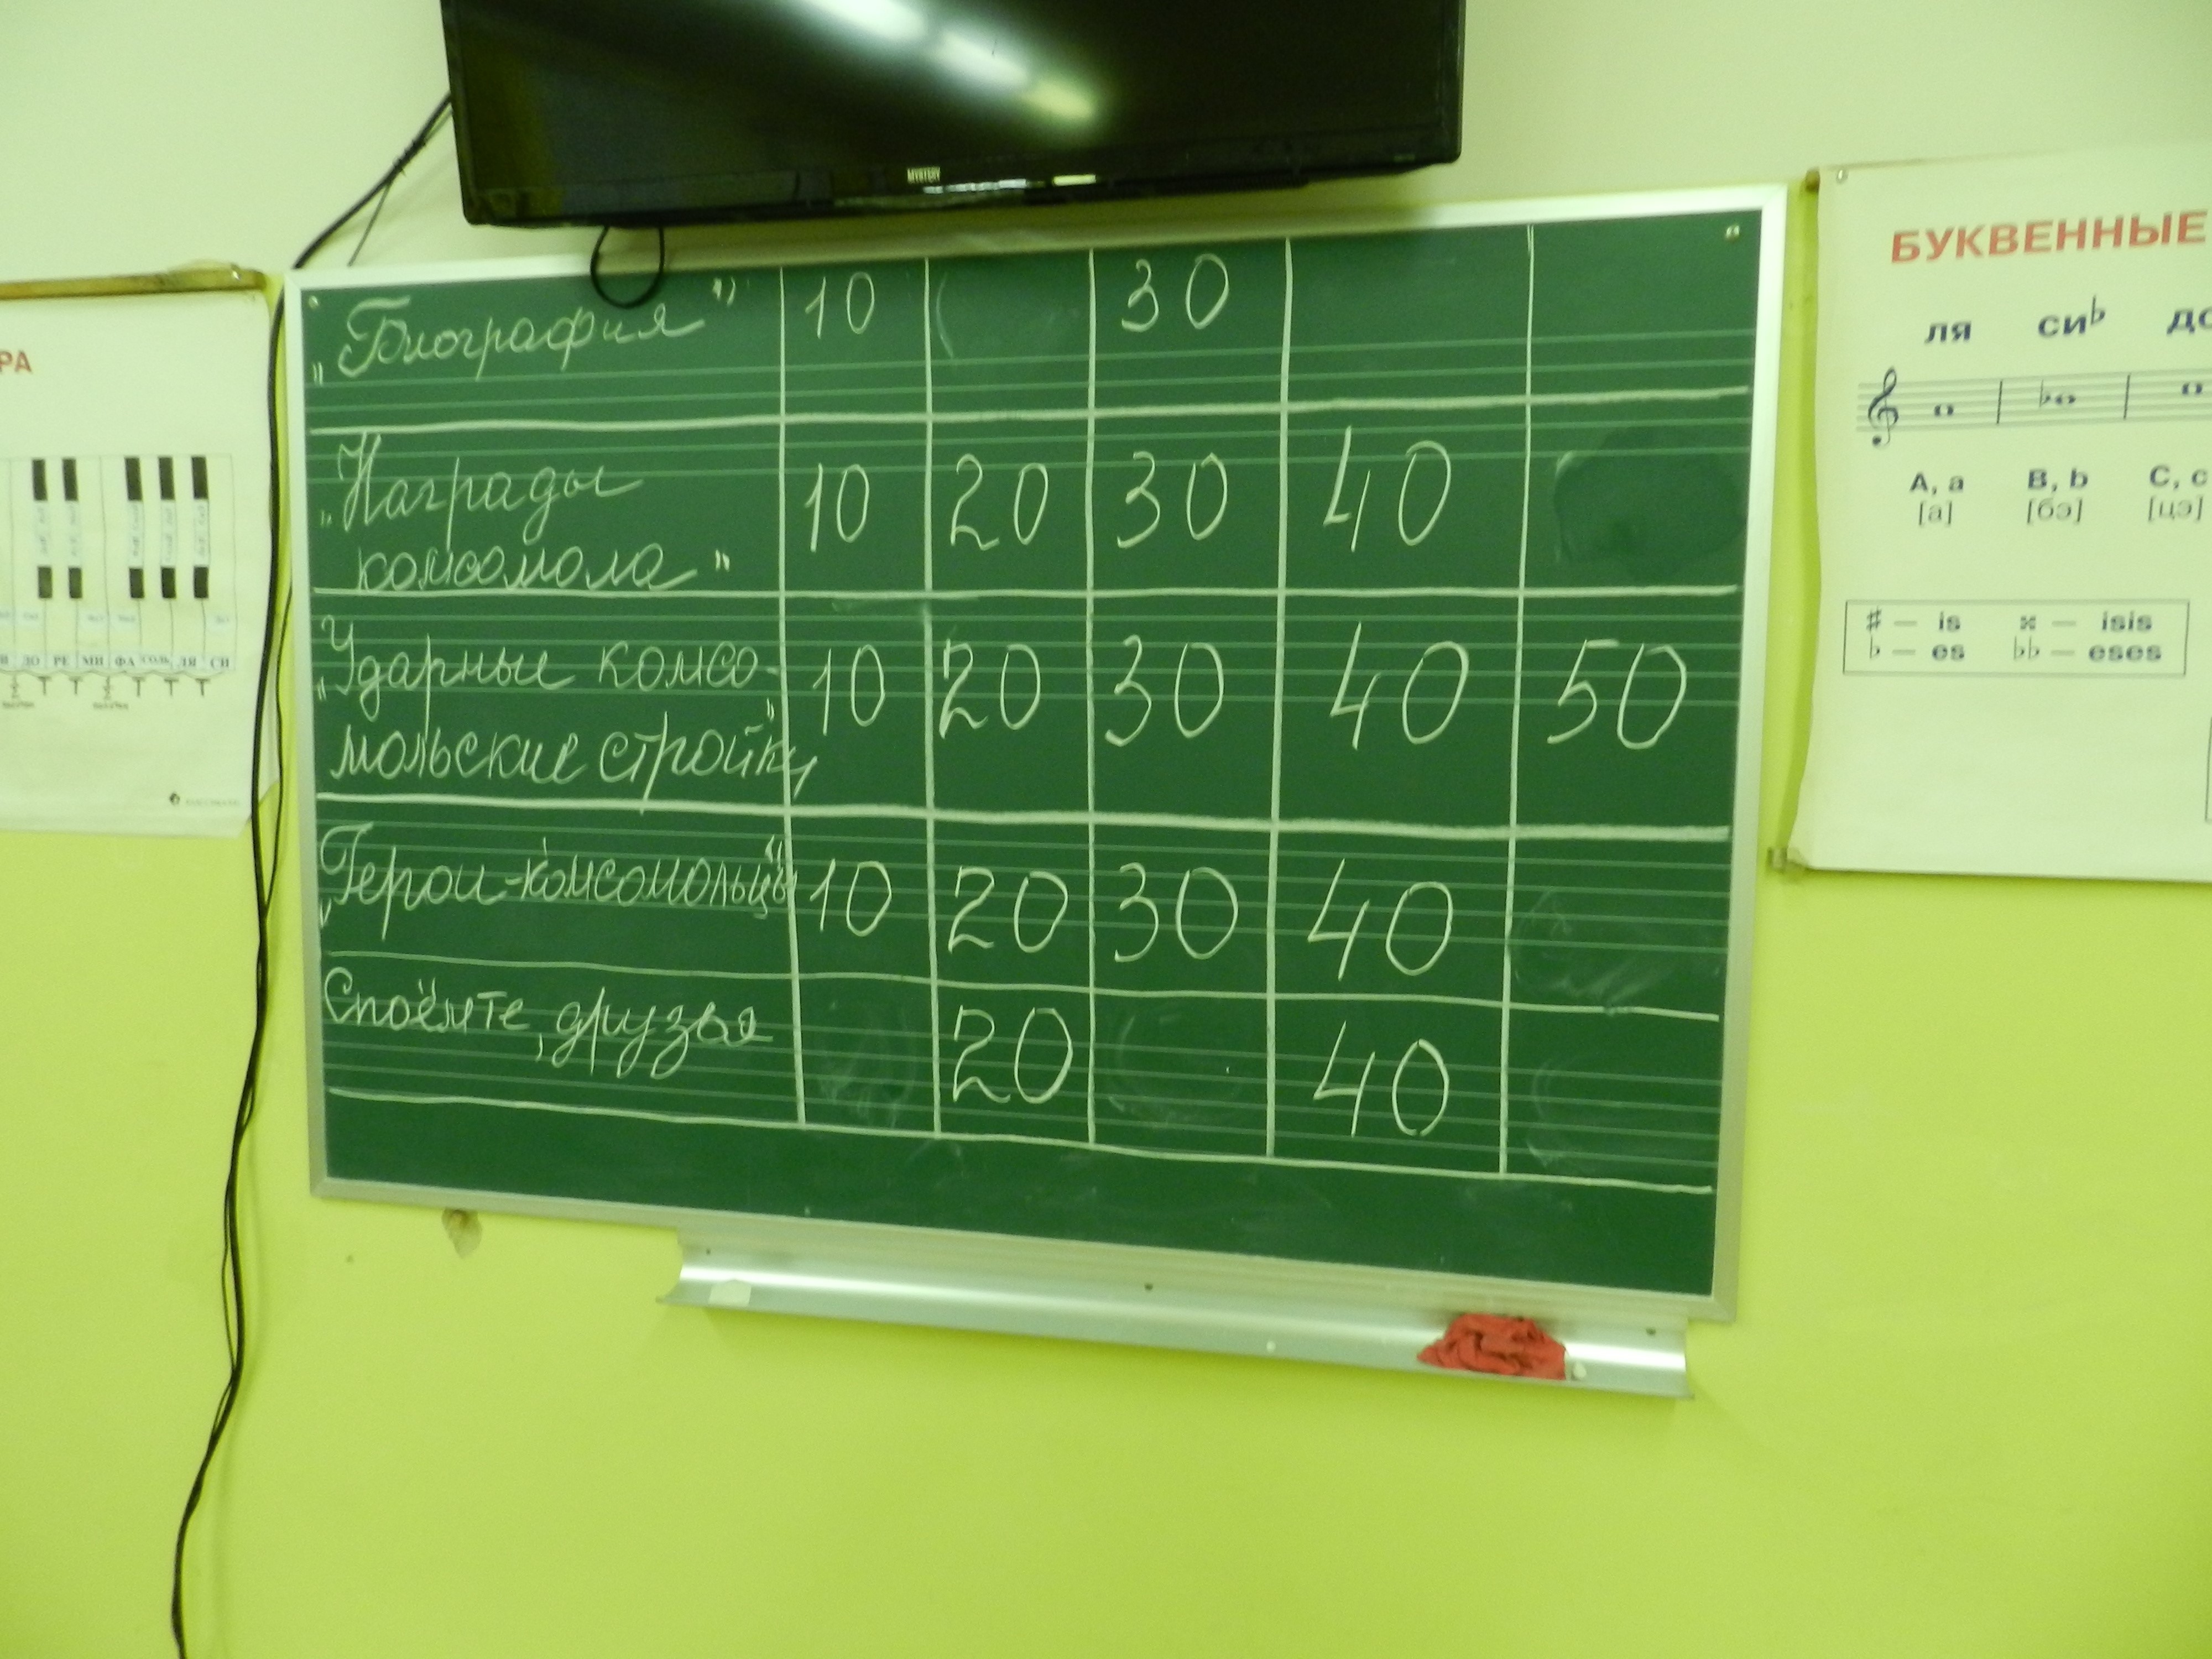 MYSTERY
"Биография" 10 30
"Награды
комсомола" 10 20 30 40
"Ударные комсо-
мольские стройки" 10 20 30 40 50
"Герои-комсомольцы" 10 20 30 40
Споёмте, друзья 20 40
РА
ДО РЕ МИ ФА СОЛЬ ЛЯ СИ
БУКВЕННЫЕ
ля си♭ до
A, a B, b C, c
[а] [бэ] [цэ]
♯ — is 𝄪 — isis
♭ — es ♭♭ — eses